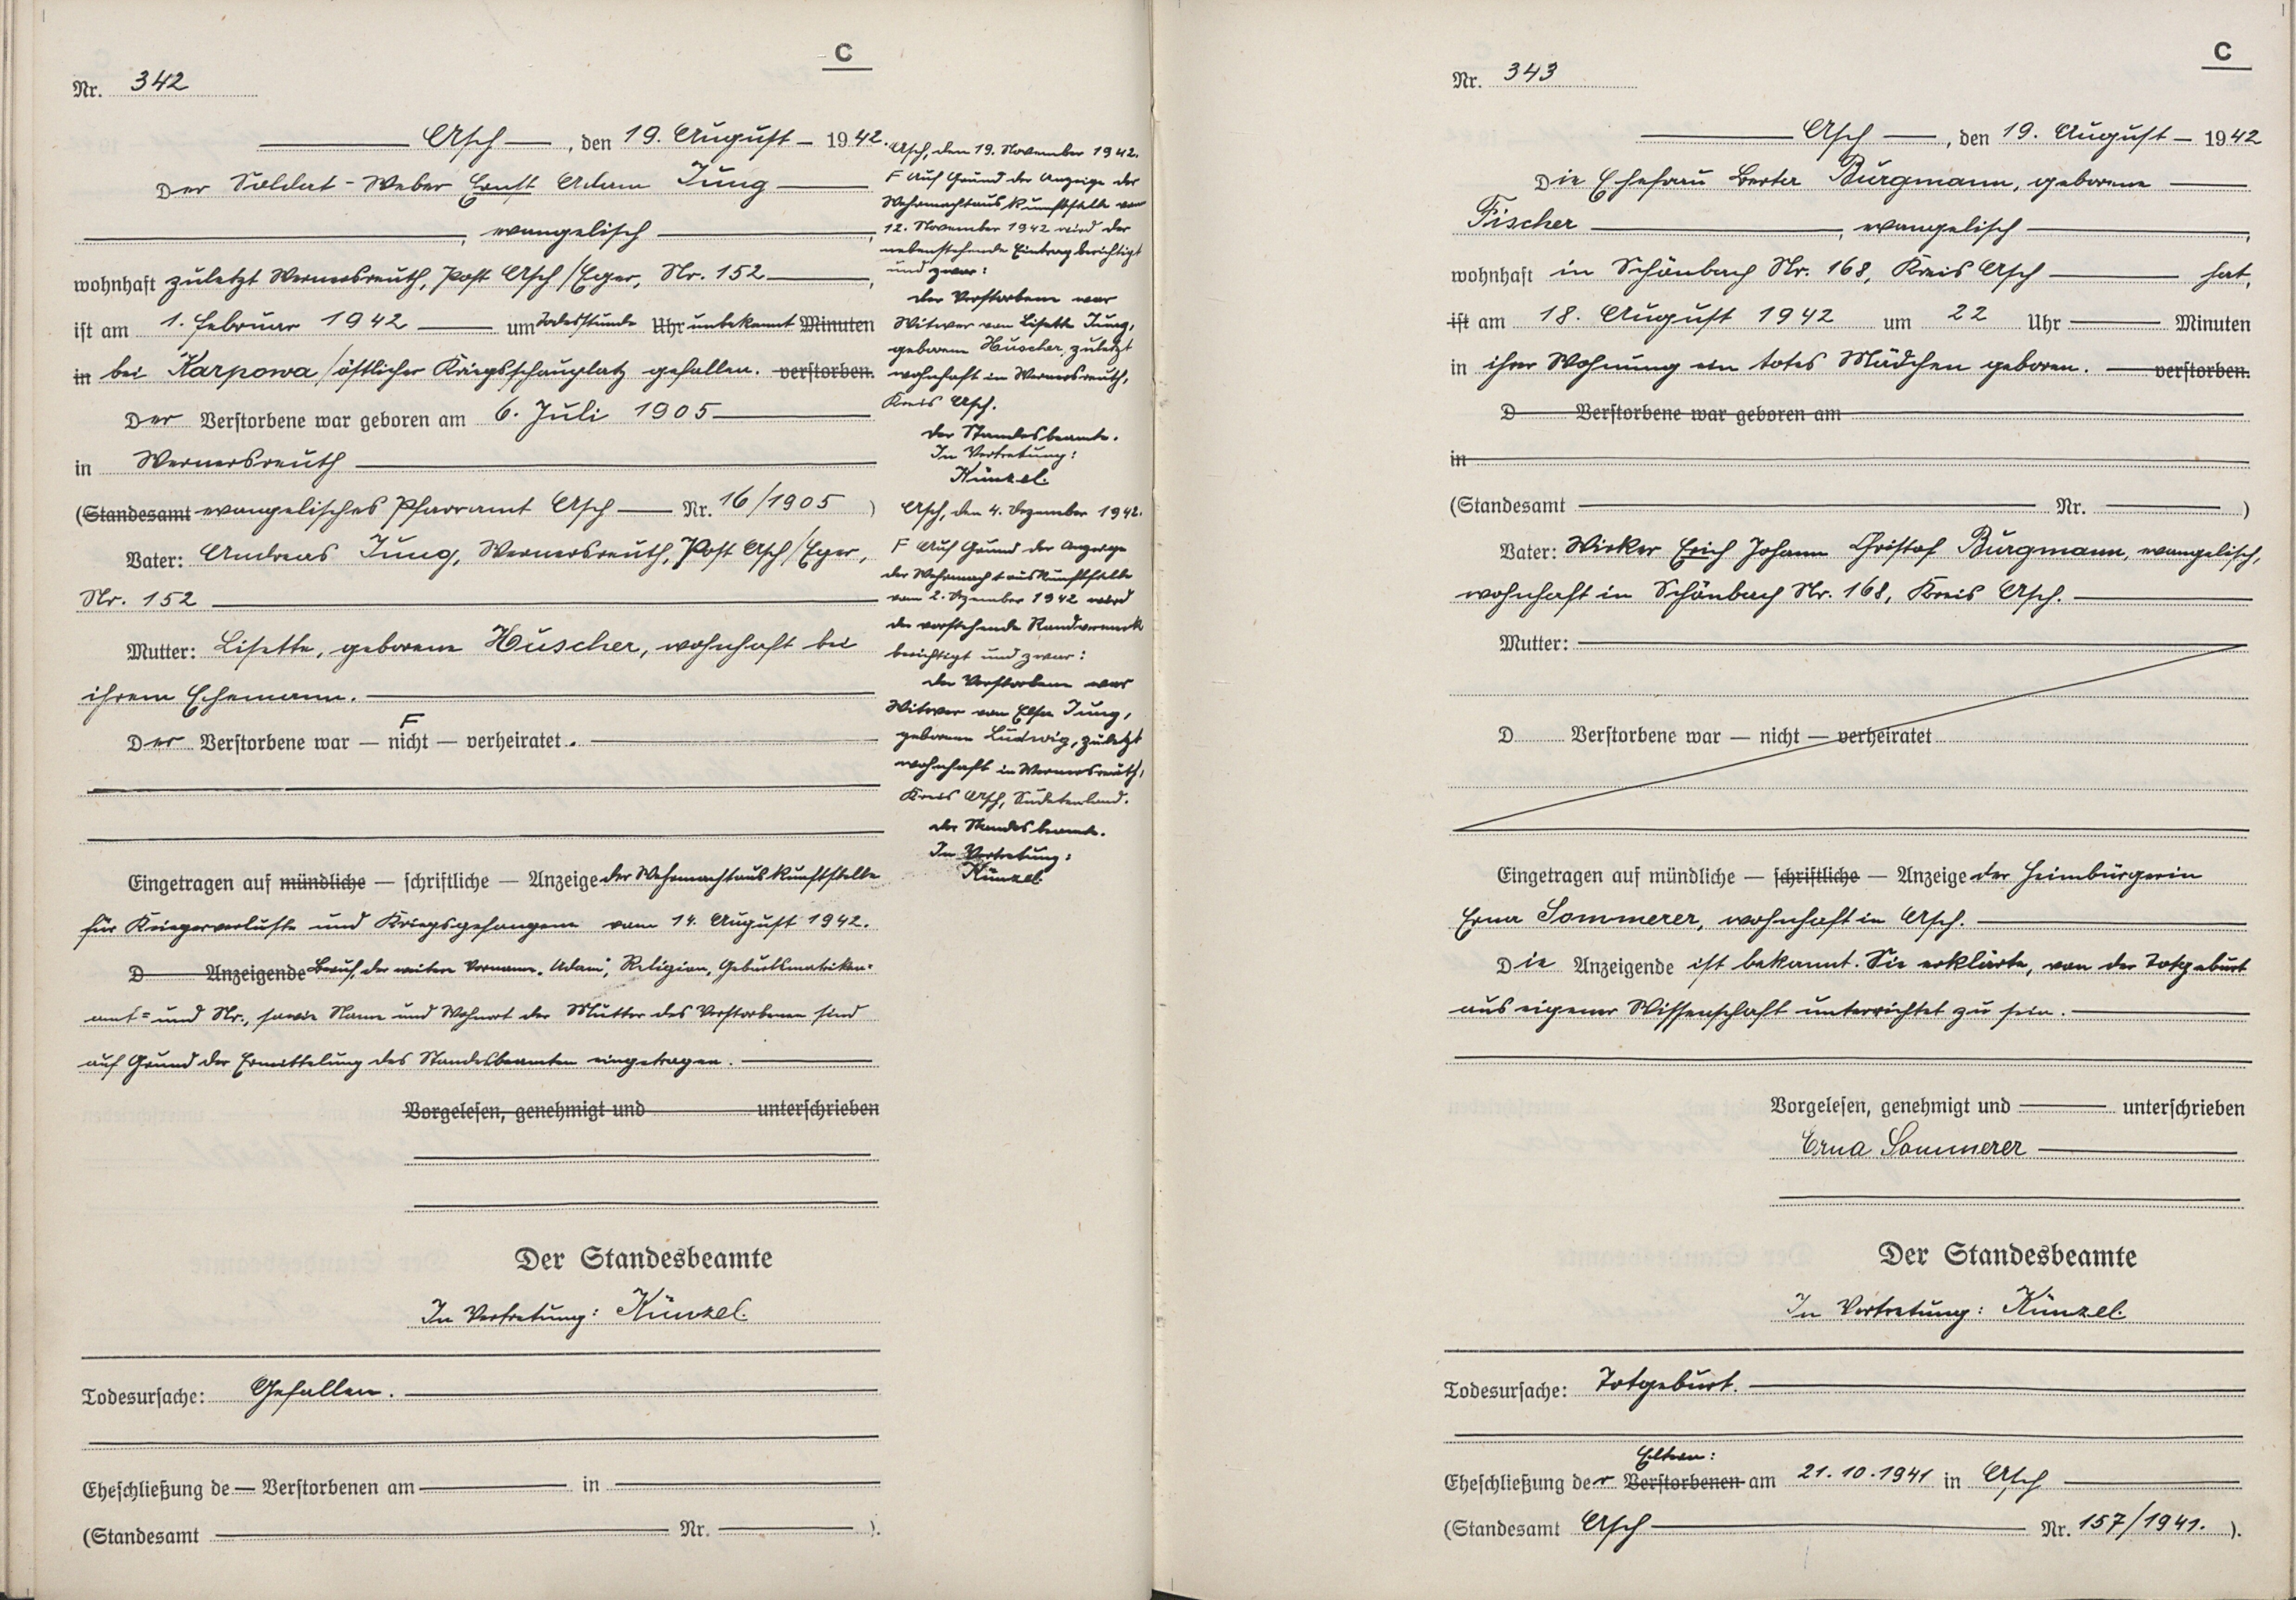 C
Nr. 342
Asch, den 19. August 1942.
Der Soldat-Weber Ernst Adam Jung
, evangelisch,
wohnhaft zuletzt Wernersreuth, Post Asch/Eger, Nr. 152,
ist am 1. Februar 1942 um Todesstunde Uhr unbekannt Minuten
in bei Karpowa/östlicher Kriegsschauplatz gefallen. verstorben.
Der Verstorbene war geboren am 6. Juli 1905
in Wernersreuth
(Standesamt evangelisches Pfarramt Asch Nr. 16/1905)
Vater: Andreas Jung, Wernersreuth, Post Asch/Eger,
Nr. 152
Mutter: Lisette, geborene Huscher, wohnhaft bei
ihrem Ehemann.
F
Der Verstorbene war — nicht — verheiratet.
Eingetragen auf mündliche — schriftliche — Anzeige der Wehrmachtauskunftstelle
für Kriegerverluste und Kriegsgefangene vom 14. August 1942.
D Anzeigende Beruf, der weitere Vorname „Adam", Religion, Geburtsmatriken-
amt- und Nr., sowie Name und Wohnort der Mutter des Verstorbenen sind
auf Grund der Ermittelung des Standesbeamten eingetragen.
Vorgelesen, genehmigt und unterschrieben
Der Standesbeamte
In Vertretung: Künzel.
Todesursache: Gefallen.
Eheschließung de — Verstorbenen am in
(Standesamt Nr. ).
Asch, den 19. November 1942.
F Auf Grund der Anzeige der
Wehrmachtauskunftstelle vom
12. November 1942 wird der
nebenstehende Eintrag berichtigt
und zwar:
der Verstorbene war
Witwer von Lisette Jung,
geborene Huscher, zuletzt
wohnhaft in Wernersreuth,
Kreis Asch.
Der Standesbeamte.
In Vertretung:
Künzel.
Asch, den 4. Dezember 1942.
F Auf Grund der Anzeige
der Wehrmachtauskunftstelle
vom 2. Dezember 1942 wird
der vorstehende Randvermerk
berichtigt und zwar:
der Verstorbene war
Witwer von Elsa Jung,
geborene Ludwig, zuletzt
wohnhaft in Wernersreuth,
Kreis Asch, Sudetenland.
Der Standesbeamte.
In Vertretung:
Künzel
C
Nr. 343
Asch, den 19. August 1942
Die Ehefrau Berta Burgmann, geborene
Fischer, evangelisch,
wohnhaft in Schönbach Nr. 168, Kreis Asch hat,
ist am 18. August 1942 um 22 Uhr Minuten
in ihrer Wohnung ein totes Mädchen geboren. verstorben.
D Verstorbene war geboren am
in
(Standesamt Nr. )
Vater: Wirker Erich Johann Christof Burgmann, evangelisch,
wohnhaft in Schönbach Nr. 168, Kreis Asch.
Mutter:
D Verstorbene war — nicht — verheiratet
Eingetragen auf mündliche — schriftliche — Anzeige der Heimbürgerin
Erna Sommerer, wohnhaft in Asch.
Die Anzeigende ist bekannt. Sie erklärte, von der Totgeburt
aus eigener Wissenschaft unterrichtet zu sein.
Vorgelesen, genehmigt und unterschrieben
Erna Sommerer
Der Standesbeamte
In Vertretung: Künzel.
Todesursache: Totgeburt.
Eltern:
Eheschließung der Verstorbenen am 21.10.1941 in Asch
(Standesamt Asch Nr. 157/1941.).